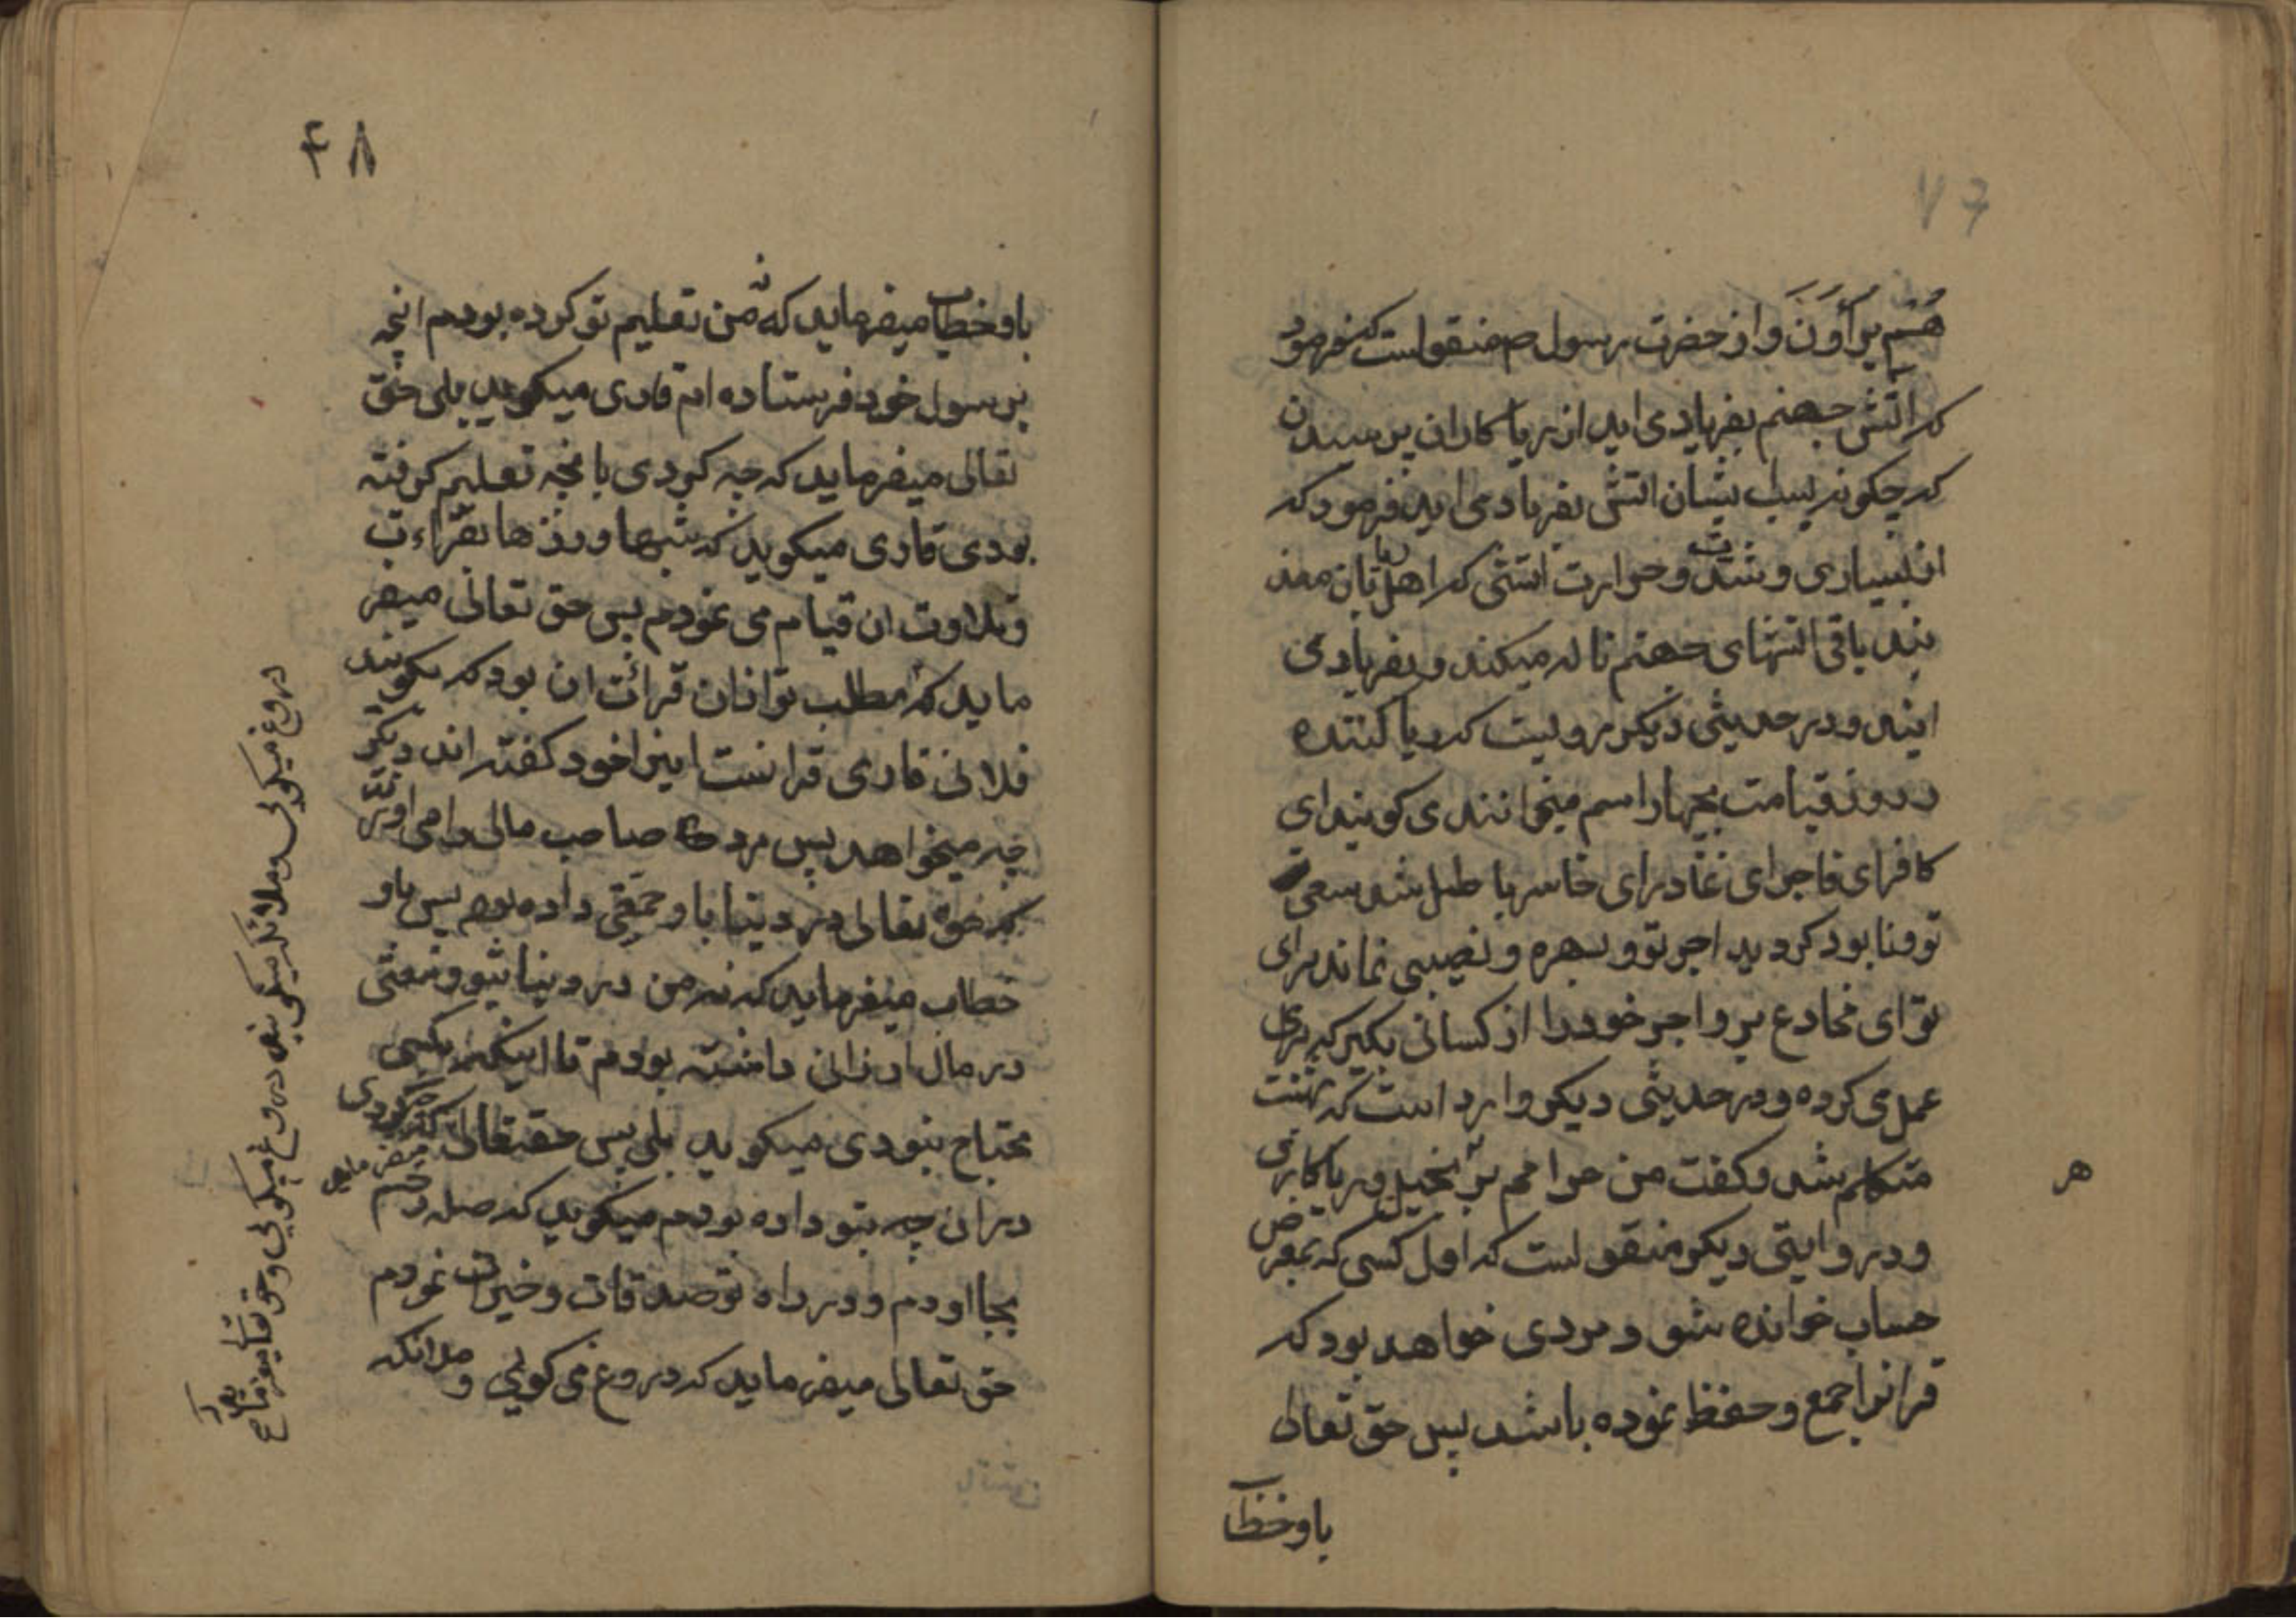 ۷۶
هُمْ یُرَآؤُنَ و از حضرت رسول ص منقولست که فرمود
که اتش جهنم بفریاد می اید از ریا کاران پرسیدن
که چکونه یسبب ایشان اتش بفریاد می اید فرمود که
از بسیاری و شدت و حرارت اتشی که اهل ریا بان معذ
بند باقی اتشهای جهنم ناله میکند و بفریاد می
ایند و در حدیثی دیکر مرویست که ریا کننده
در روز قیامت بچهار اسم میخوانند می کویند ای
کافر ای فاجر ای غادر ای خاسر باطل شد سعی
تو و نابود کردید اجر تو و بهره و نصیبی نماند برای
تو ای مخادع برو اجر خود را از کسانی بکیر که برای
عمل می کرده و در حدیثی دیکر وارد است که بهشت
متکلم شد و کفت من حرامم بر بخیل و ریا کار
و در روایتی دیکر منقولست که اول کسی که بمعرض
حساب خوانده شود مردی خواهد بود که
قرانرا جمع و حفظ نموده باشد پس حق تعالی
باو خطا
ه
۴۸
باو خطاب میفرماید که نه من تعلیم تو کرده بودم انچه
برسول خود فرستاده ام قاری میکوید بلی حق
تعالی میفرماید که چه کردی بانچه تعلیم کرفته
بودی قاری میکوید که شبها و روزها بقراءت
و تلاوت ان قیام می نمودم پس حق تعالی میفر
ماید که مطلب تو از ان قرائت ان بود که بکویند
فلانی قاری قرانست اینرا خود کفته اند دیکر
چه میخواهد پس مرد صاحب مالی را می اورند
که حق تعالی در دنیا باو داده بود پس باو
خطاب میفرماید که نه من در دنیا بتو وسعتی
در مال ارزانی داشته بودم تا اینکه بکسی
محتاج نبودی میکوید بلی پس حقتعالی میفرماید که چه کردی
در ان چه بتو داده بودم میکوید که صله رحم
بجا اوردم و در راه تو صدقات و خیرات نمودم
حق تعالی میفرماید که دروغ می کویی و ملائکه
دروغ میکویی و ملائکه نیز دروغ میکویی و حق تعالی میفرماید